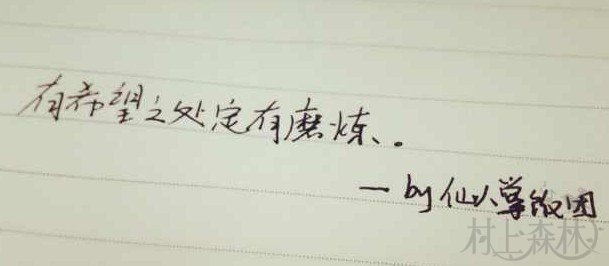 有希望之处定有磨炼、.
— by 仙人掌饭团
村上森林